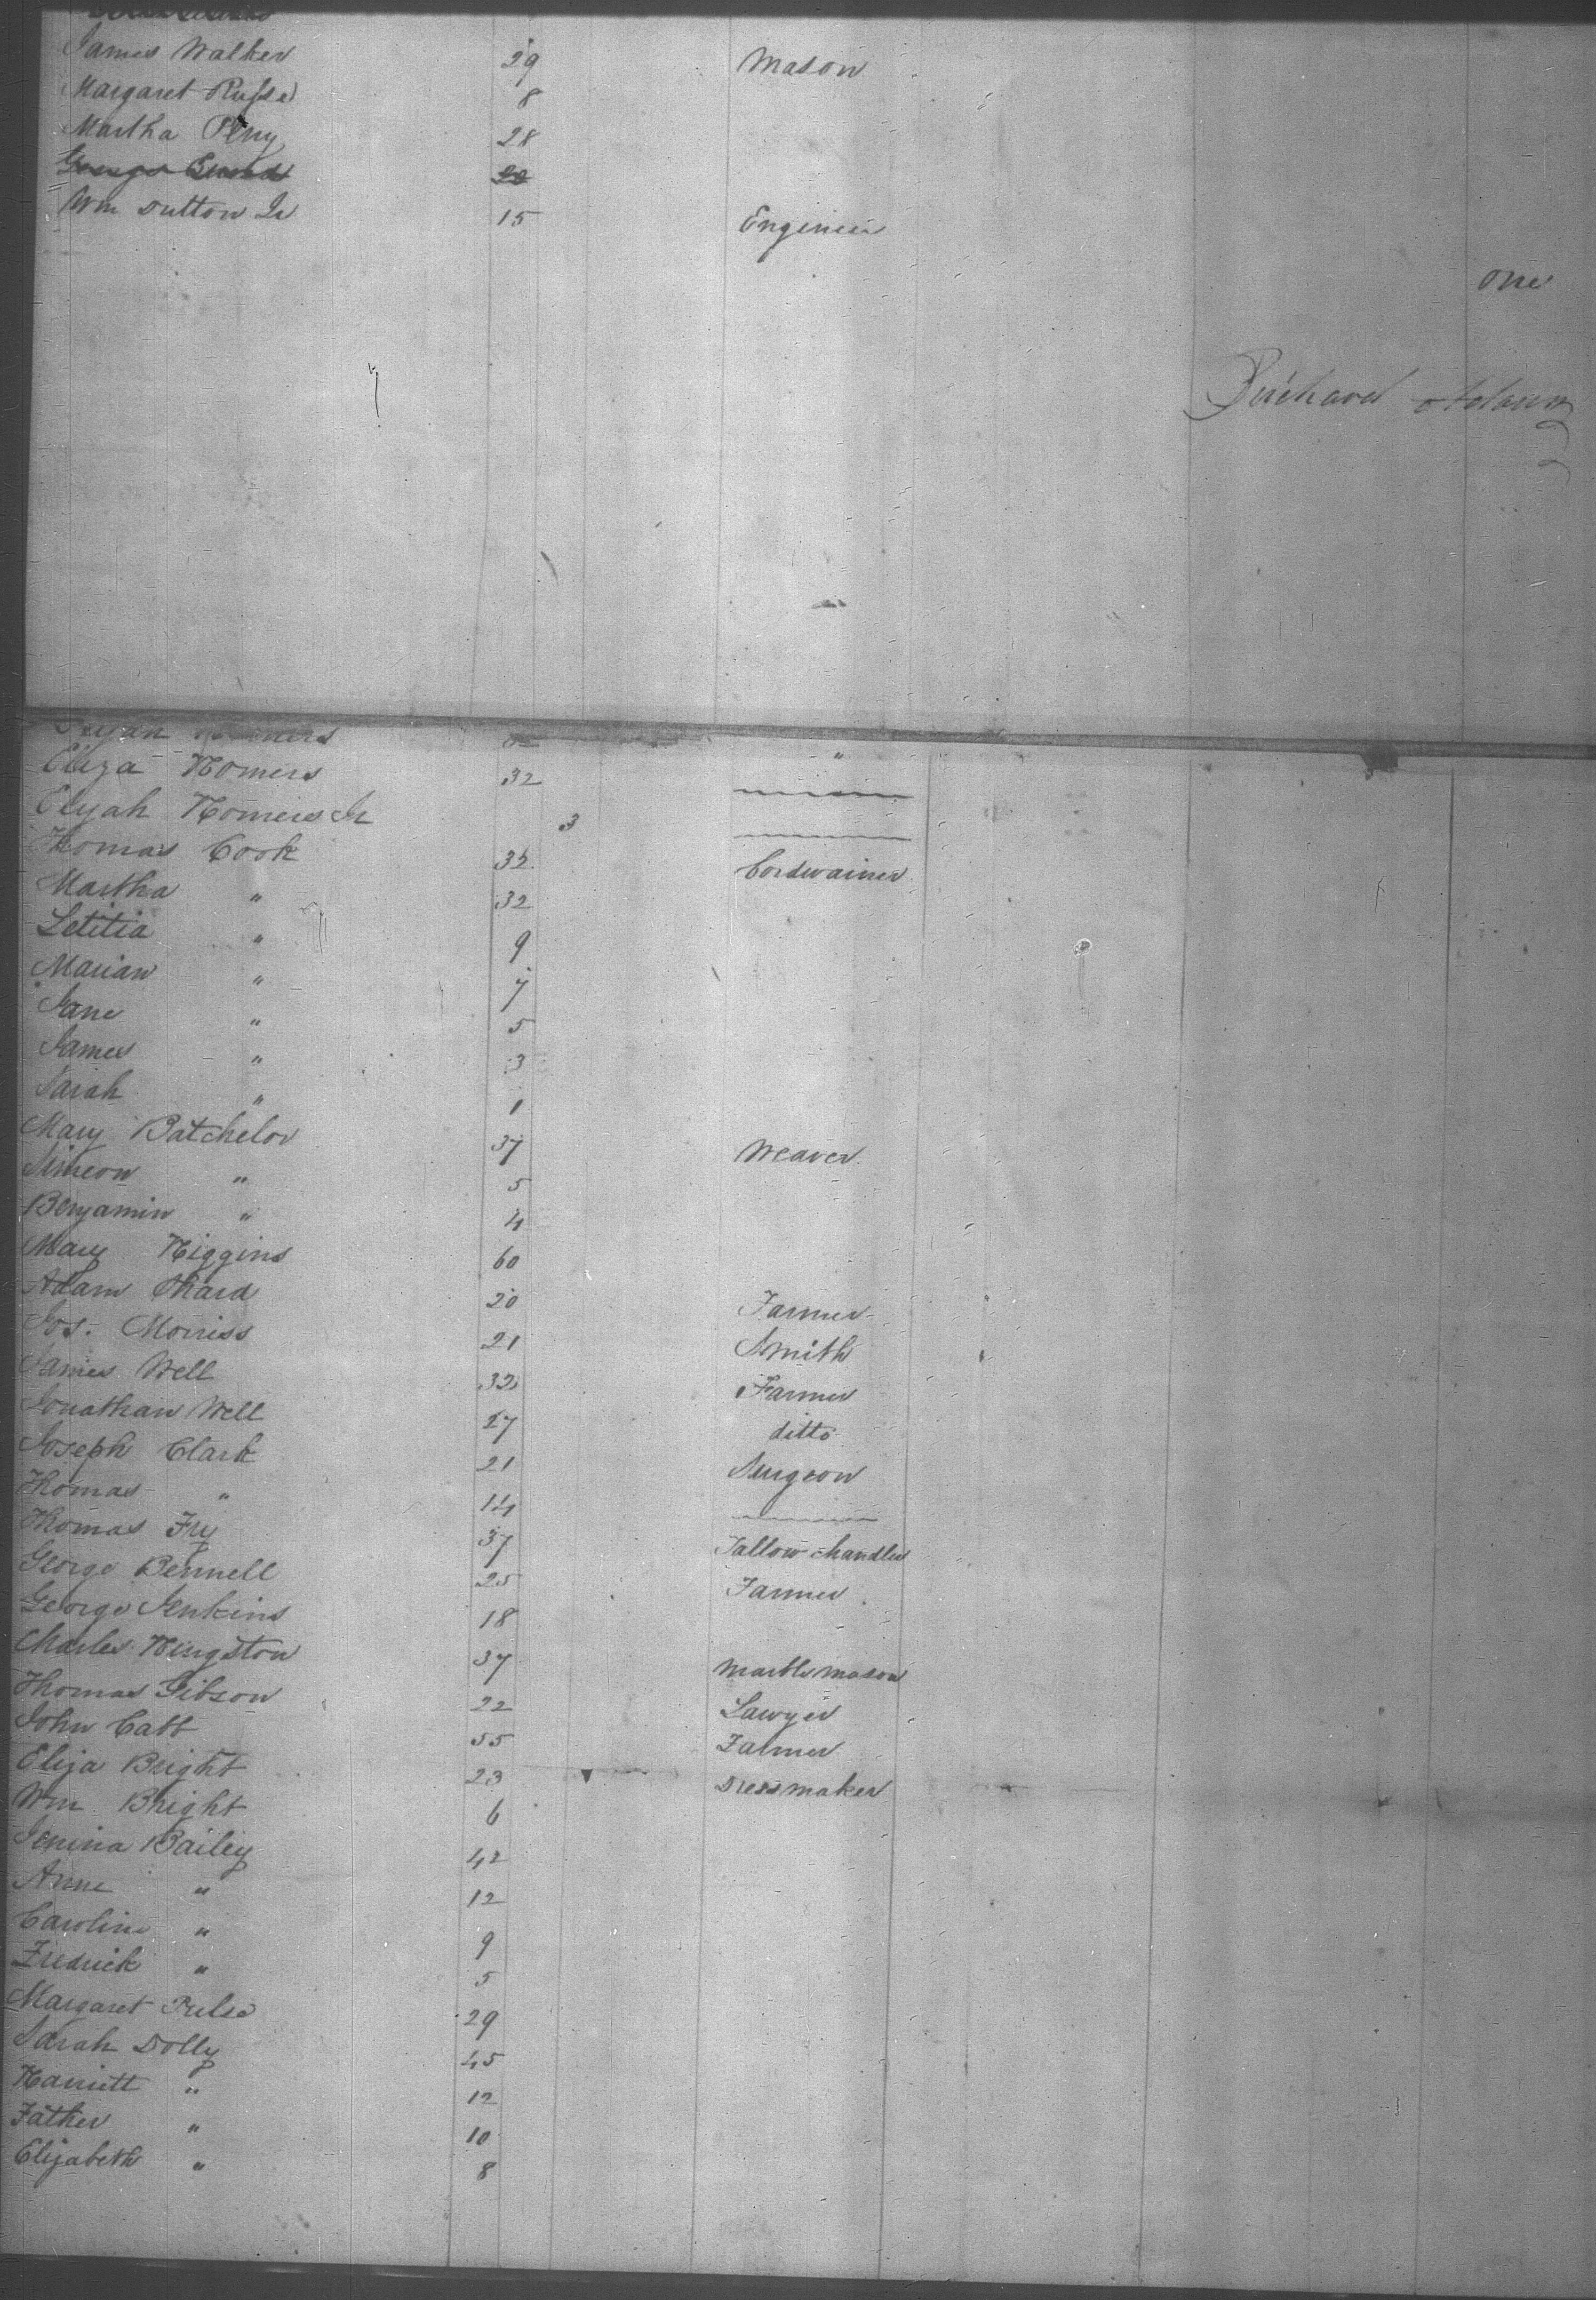 James Walker 29 Mason
Margaret Rulse 8
Martha Perry 28
George 20
Wm Dutton Jr 15 Engineer
one
Richard Adams
Elijah Homers
Eliza Homers 32 "
Elijah Homers Jr 3
Thomas Cook 32 Cordwainer
Martha " 32
Letitia " 9
Marian " 7
Jane " 5
James " 3
Sarah " 1
Mary Batchelor 37 Weaver
Simeon " 5
Benjamin " 4
Mary Higgins 60
Adam Shard 20 Farmer
Jos. Morriss 21 Smith
James Well 32 Farmer
Jonathan Well 27 ditto
Joseph Clark 21 Surgeon
Thomas " 14
Thomas Fry 37 Tallow chandler
George Bennell 25 Farmer
George Jenkins 18
Charles Hingston 37 Marble mason
Thomas Gibson 22 Lawyer
John Catt 55 Farmer
Eliza Bright 23 Dress maker
Wm Bright 6
Jemina Bailey 42
Anne " 12
Caroline " 9
Fredrick " 5
Margaret Rulse 29
Sarah Dolly 45
Harriett " 12
Father " 10
Elizabeth " 8